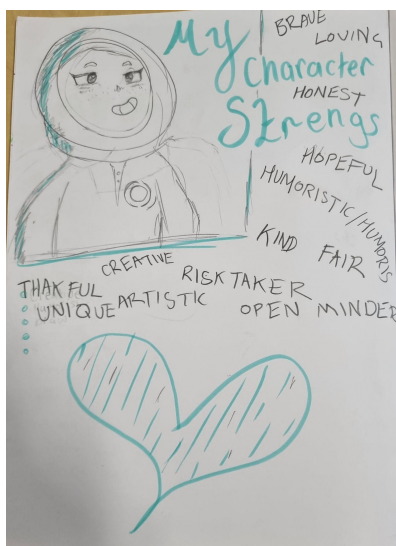 My
Character
Strengs
BRAVE
LOVING
HONEST
HOPEFUL
HUMORISTIC/HUMORIS
KIND
FAIR
CREATIVE
RISKTAKER
THAKFUL
UNIQUE
ARTISTIC
OPEN MINDED